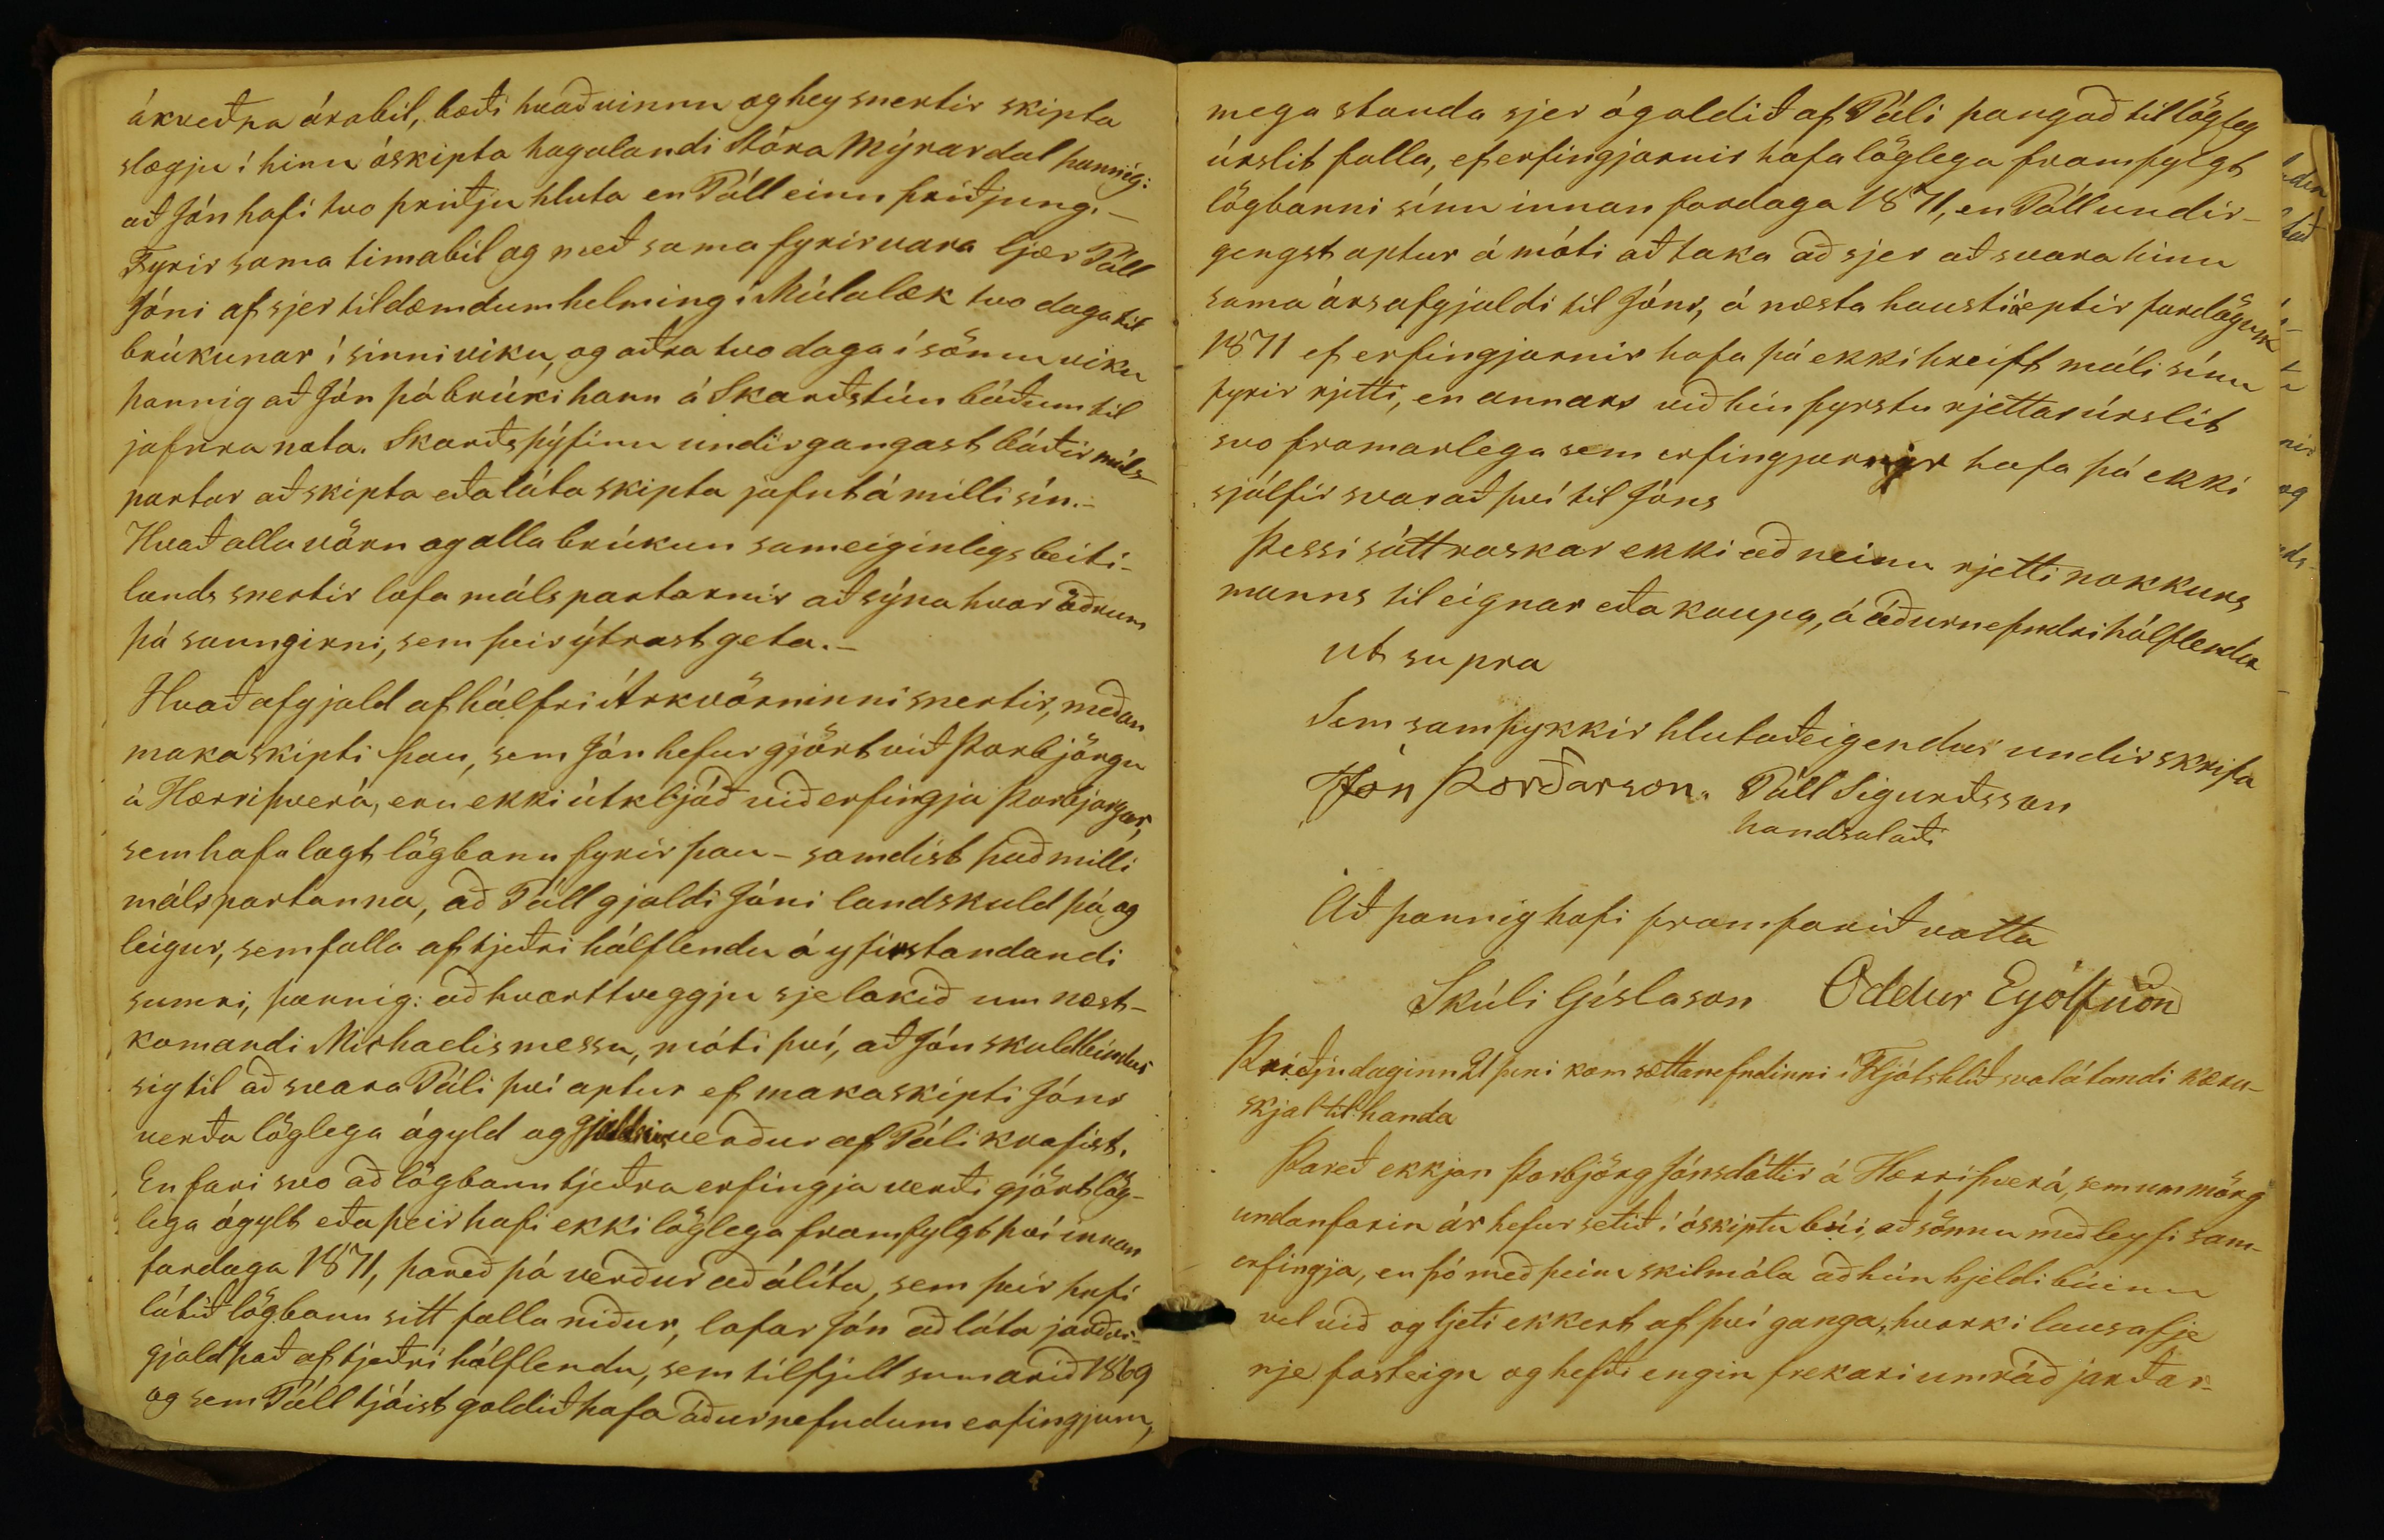 ákveðna árabil, bæði hvað vinnu og hey snertir skipta
slægju í hinu óskipta hagalandi Stóra Mýrardal þannig:
að Jón hafi tvo þriðju hluta en Páll einn þriðjung.–
Fyrir sama timabil og með sama fyrirvara ljær Páll
Jóni af sjer tildæmdum helming í Múlalæk tvo daga til
brúkunar í sinni viku, og aðra tvo daga í sömu viku
þannig að Jón þá brúki hann á Skarðstún báðum til
jafnra nota. Skarðsþýfinu undirgangast báðir máls-
partar að skipta eða láta skipta jafnt á milli sín.–
Hvað alla vörn og alla brúkun sameiginlegs beiti-
lands snertir lofa málspartarnir að sýna hvor öðrum
þá sanngirni, sem þeir ýtrast geta.–
Hvað afgjald af hálfri Árkvörninni snertir, meðan
makaskipti þau, sem Jón hefur gjört við Þorbjörgu
á Hærriþverá, eru ekki útkljáð við erfingja Þorbjargar,
sem hafa lagt lögbann fyrir þau – samdist það milli
málspartanna, að Páll gjaldi Jóni landskuld þá og
leigur, sem falla af tjeðri hálflendu á yfirstandandi
sumri, þannig: að hvorttveggju sje lokið um næst-
komandi Michaelismessu, móti því, að Jón skuldbindur
sig til að svara Páli því aptur ef makaskipti Jóns
verða löglega ógyld og verður af Páli krafist.
En fari svo að lögbann tjeðra erfingja verði gjört lög-
lega ógylt eða þeir hafi ekki löglega framfylgt því innan
fardaga 1871, þareð þá verður að álíta, sem þeir hafi
látið lögbann sitt falla niður, lofar Jón að láta jarðar-
gjald það af tjeðri hálflendu, sem tilfjell sumarið 1869
og sem Páll tjáist goldið hafa áðurnefndum erfingjum,
mega standa sjer ógoldið af Páli þangað til lögleg
úrslit falla, ef erfingjarnir hafa löglega framfylgt
lögbanni sínu innan fardaga 1871, en Páll undir-
gengst aptur á móti að taka að sjer að svara hinu
sama ársafgjaldi til Jóns, á næsta hausti eptir fardögum
1871 ef erfingjarnir hafa þá ekki hreift máli sínu
fyrir rjetti, en annars við hin fyrstu rjettarúrslit
svo framarlega sem erfingjarnir hafa þá ekki
sjálfir svarað því til Jóns
Þessi sátt raskar ekki að neinu rjetti nokkurs
manns til eignar eða kaups, á áðurnefndri hálflendu
ut supra
Sem samþykkir hlutaðeigendur undirskrifa
Jón Þorðarson. Páll Sigurðsson
handsalaði
Að þannig hafi framfarið votta
Skúli Gíslason Oddur Eyólfsson
Þriðjudaginn 21 júni kom sættanefndinni í Fljótshlíð svolátandi kæru-
skjal til handa
Þareð ekkjan Þorbjörg Jónsdóttir á Hærriþverá, sem um mörg
undanfarin ár hefur setið í óskiptu búi, að sönnu með leyfi sam-
erfingja, en þó með þeim skilmála að hún hjeldi búinu
vel við og ljeti ekkert af því ganga, hvorki lausafje
nje fasteign og hefði engin frekari umráð jarðar-